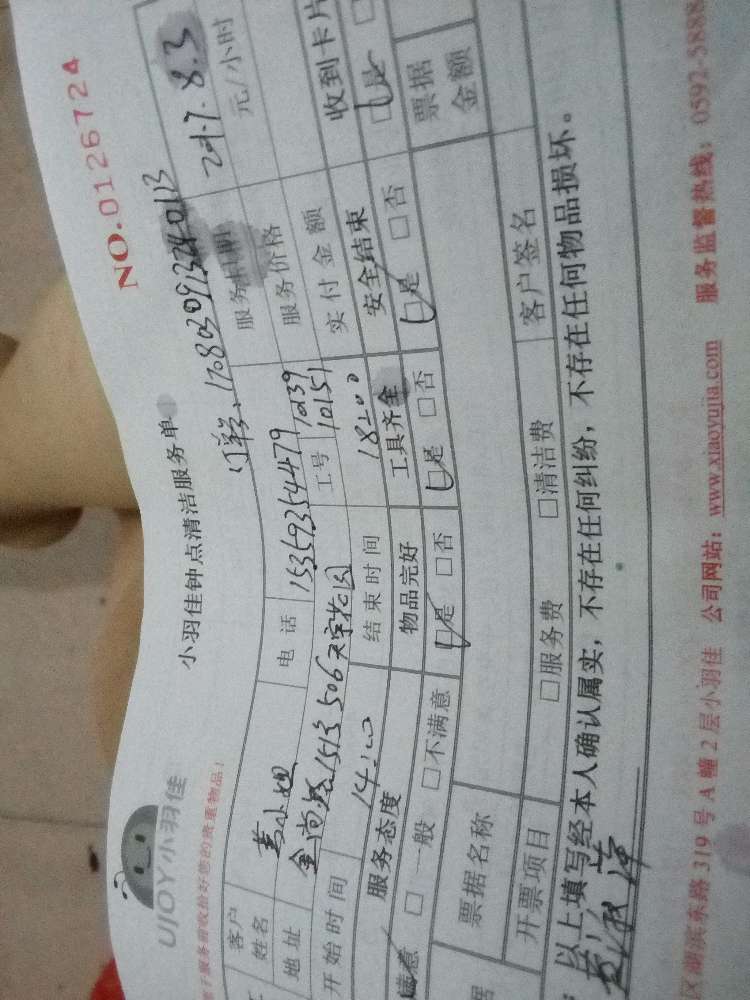 UJOY小羽佳
小羽佳钟点清洁服务单
NO.0126724
贵重物品!
客户姓名 黄小姐 电话 15359354479 服务时间 2017.8.3
地址 金尚路1513 506 工号 10139 10151 服务价格 元/小时
开始时间 14:00 结束时间 18:00 实付金额
服务态度 物品完好 工具齐全 安全结束 收到卡片
满意 □一般 □不满意 □是 □否 □是 □否 □是 □否 □是
票据名称 票据金额
开票项目 □服务费 □清洁费 客户签名
以上填写经本人确认属实,不存在任何纠纷,不存在任何物品损坏。
区湖滨东路319号A幢2层小羽佳 公司网站:www.xiaoyujia.com 服务监督热线:0592-5888